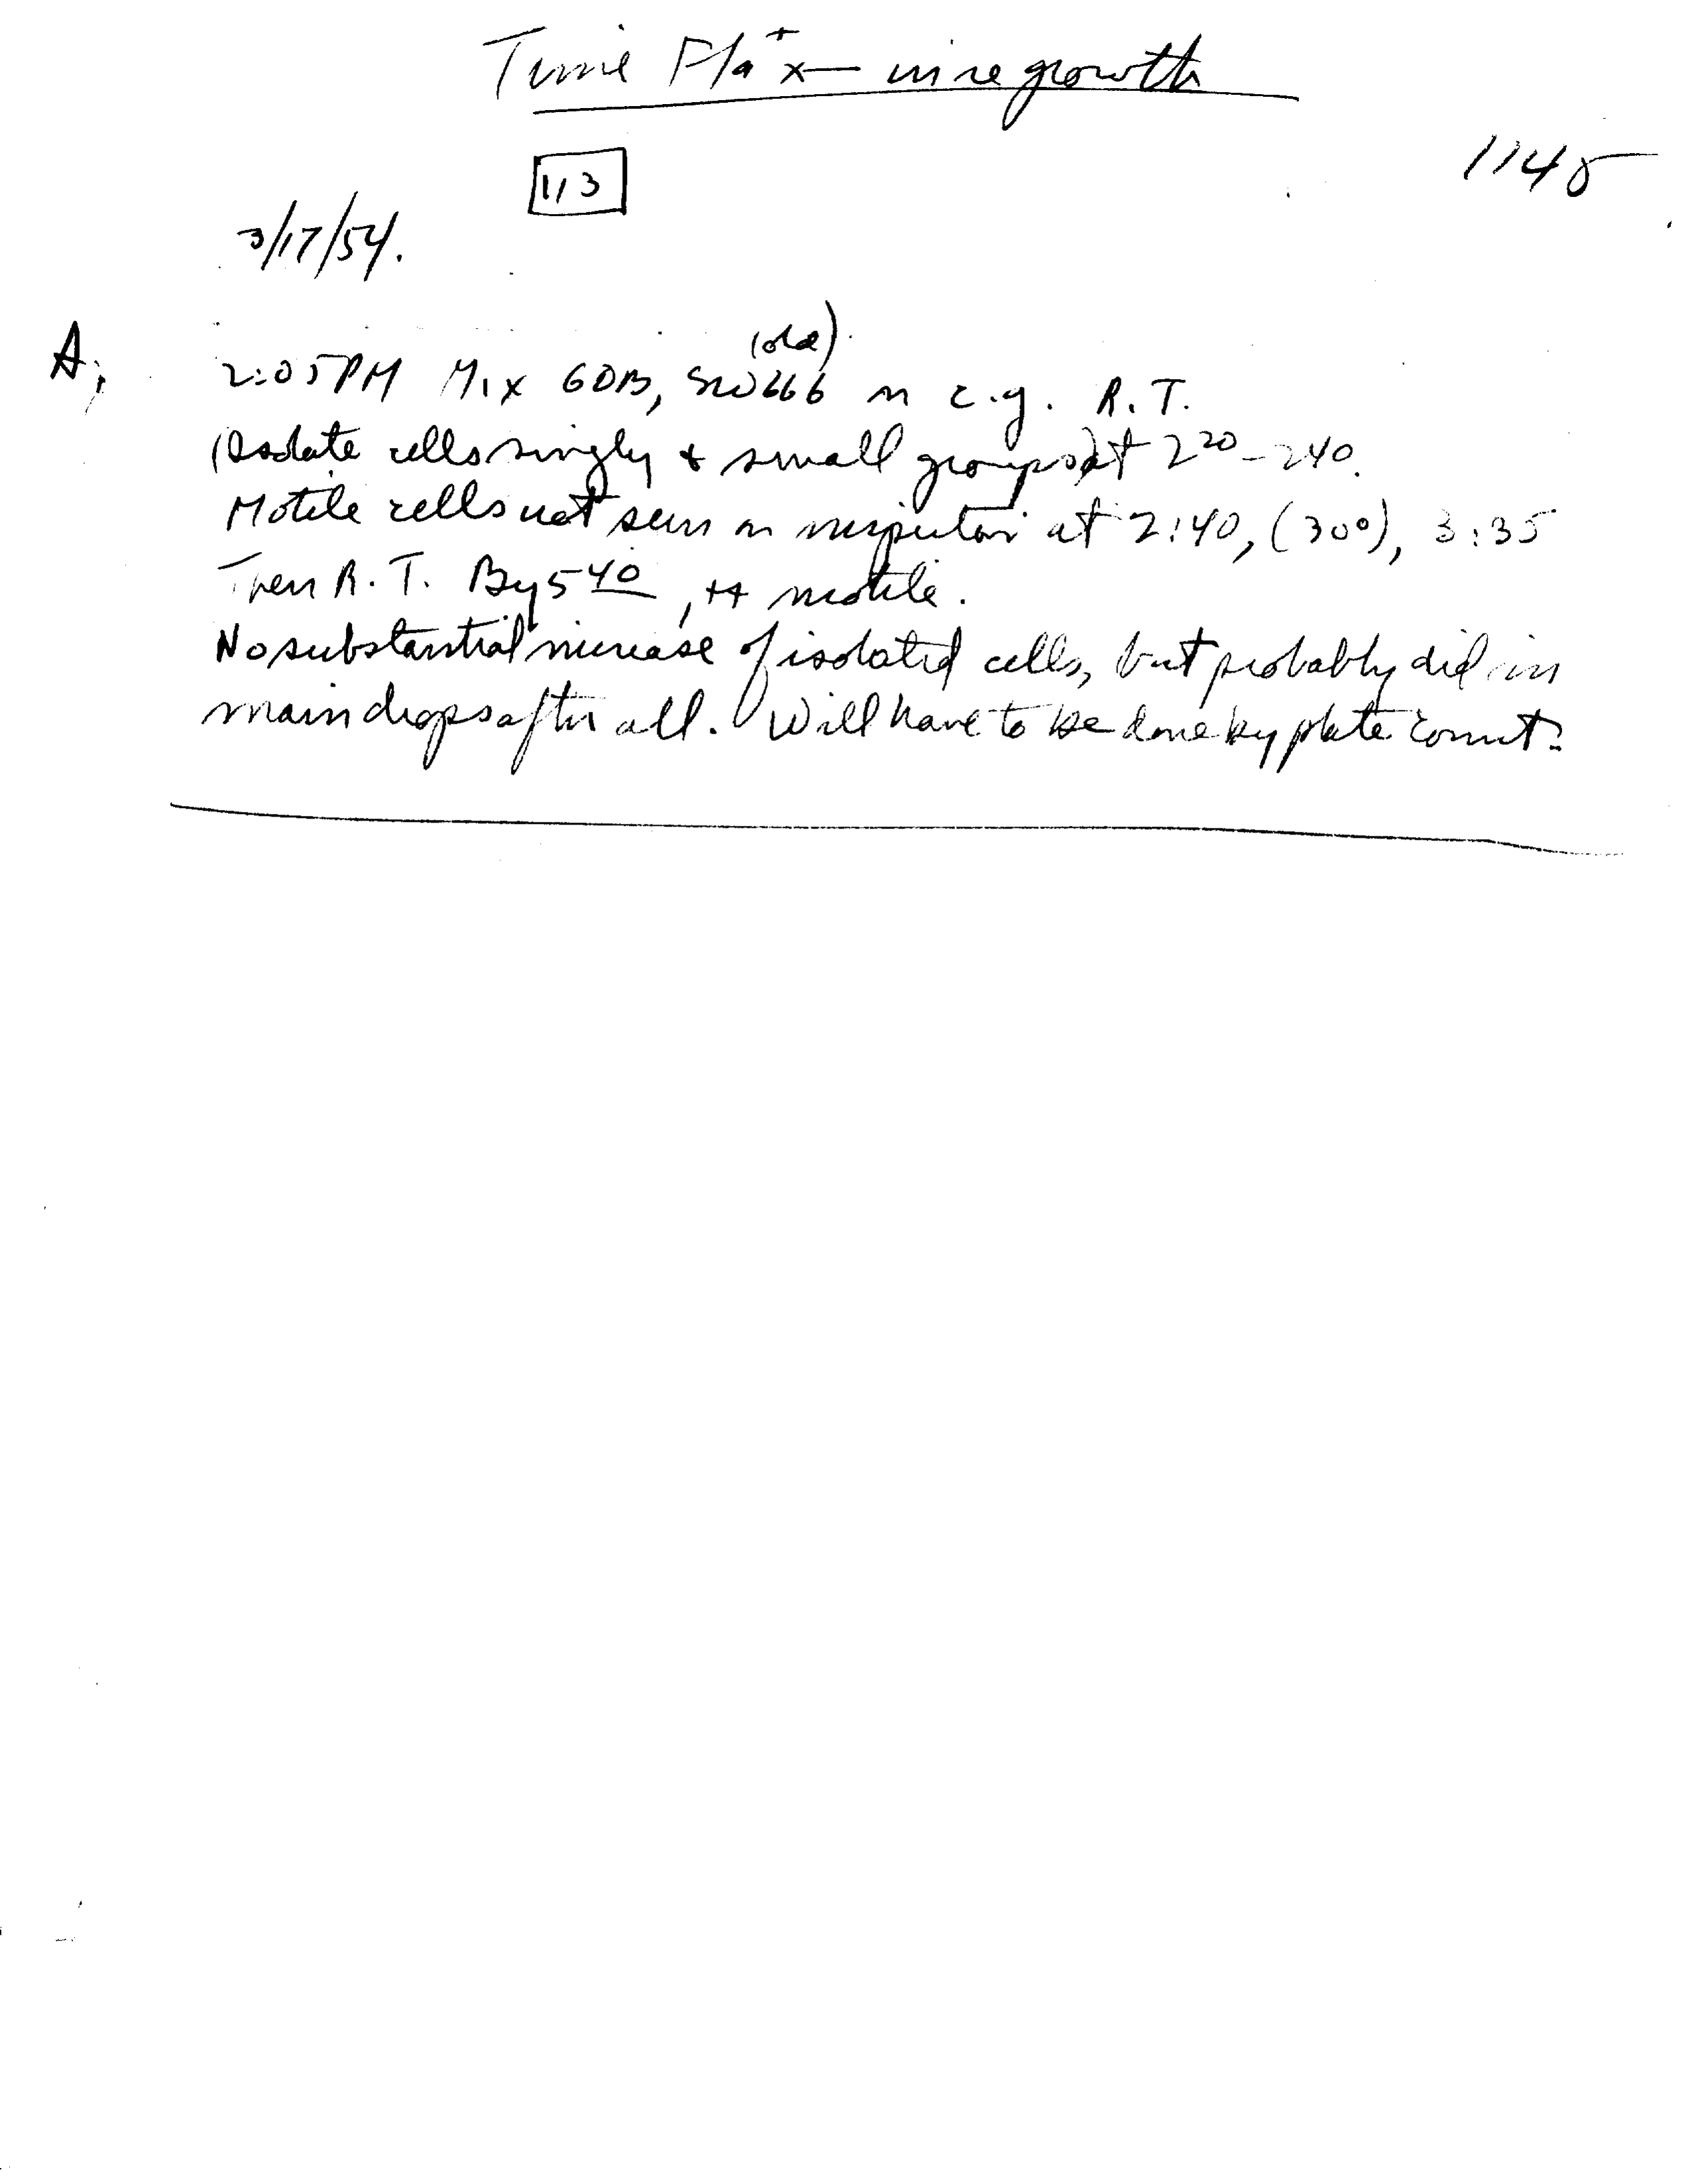 Time Fla⁺ x— in regrowth
113
1145
3/17/54.
(old).
A, 2:05PM Mix GDB, SW666 in c.g. R.T.
(Isolate cells singly + small groups) at 2²⁰-240.
Motile cells not seen on inspection at 2:40, (30°), 3:35
Then R.T. By 5 40, ++ motile.
No substantial increase of isolated cells, but probably did in
main drops after all. Will have to be done by plate count.